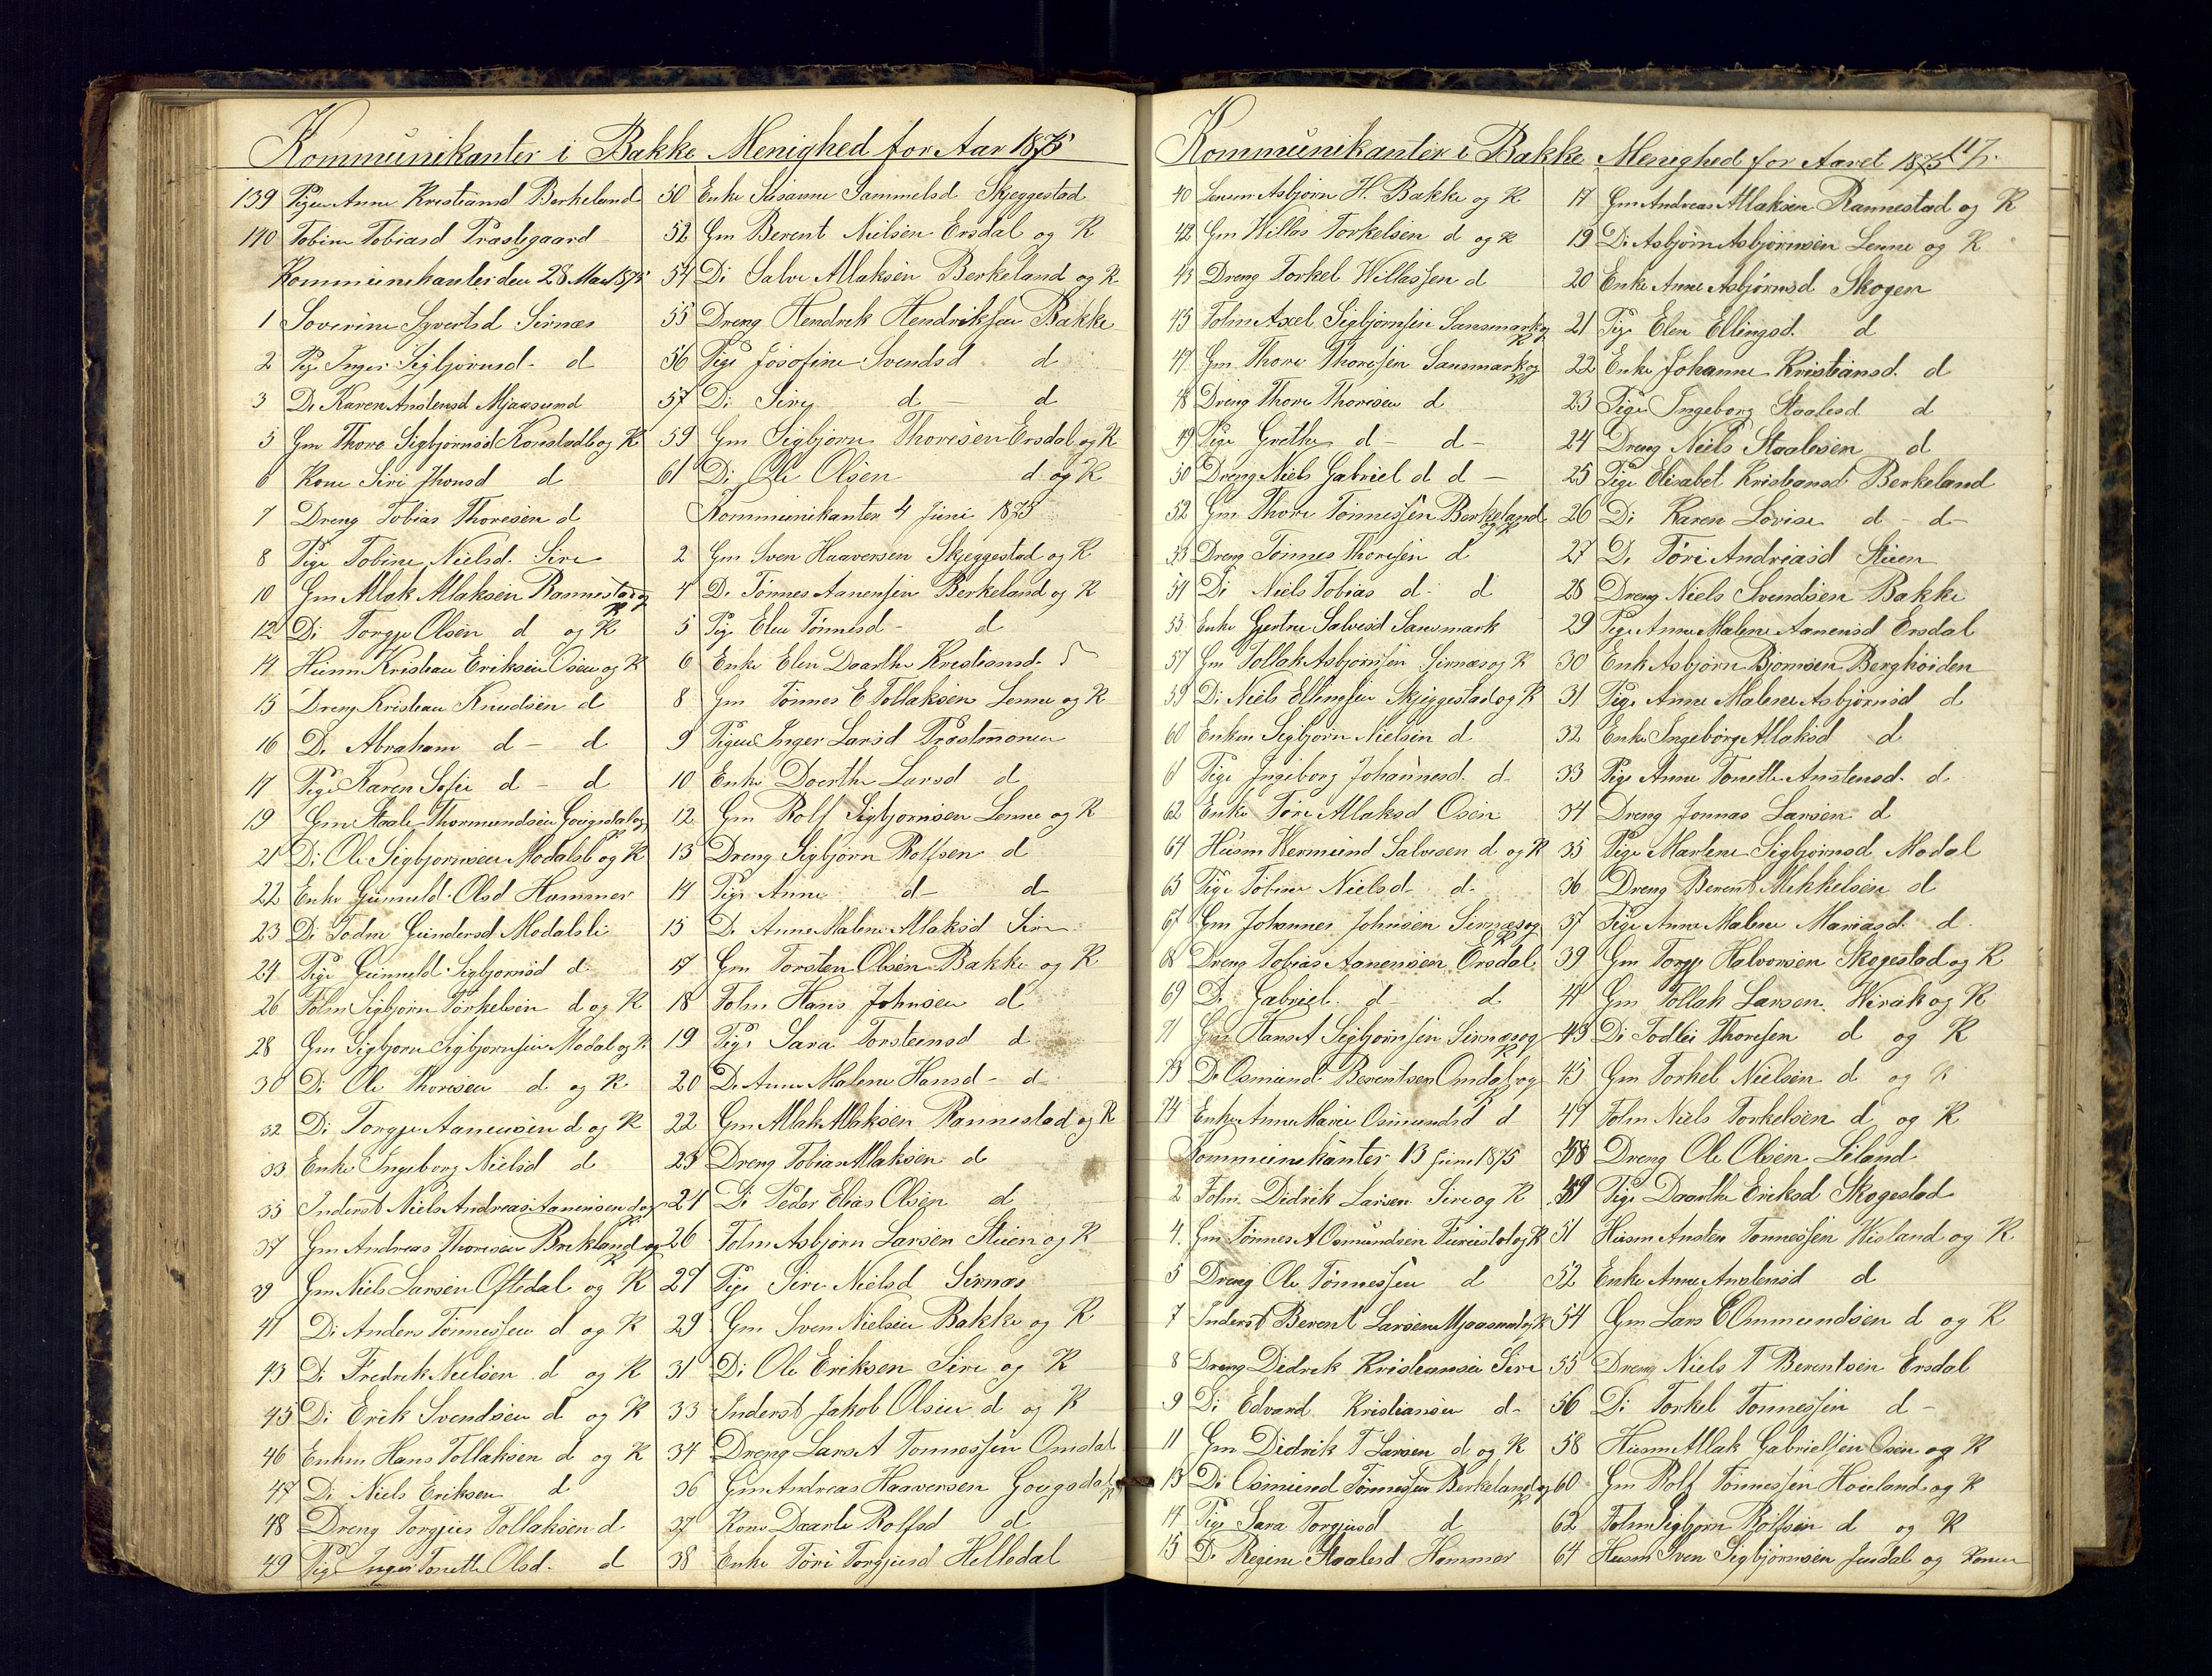 Kommunikanter i Bakke Menighed for Aar 1875
139 Pigen Anne Kristiansd Berkeland
140 Tobine Tobiasd Præstegaard
Kommunikanter den 28 Mai 1875
1 Soverine Syvertsd Sirnæs
2 Pig. Inger Sigbjørnsd. d
3 Di Karen Anstensd Mjaasund
5 Gm Thore Sigbjørnsd Korestadb og K
6 Kone Siri Jhonsd d
7 Dreng Tobias Thoresen d
8 Pige Tobine Nielsd. Sire
10 Gm Atlak Atlaksen Rannestad og K
12 Di Torgje Olsen d og K
14 Husm Kristian Eriksen Osen og K
15 Dreng Kristian Knudsen d
16 Di Abraham d - d
17 Pige Karen Sofie d - d
19 Gm Staale Thormundsen Gougsdal og K
21 Di Ole Sigbjørnsen Modalsli og K
22 Enke Gunneld Olsd Hammer
23 Di Todne Gundersd Modalsli
24 Pige Gunneld Sigbjørnsd d
26 Folm Sigbjørn Torkelsen d og K
28 Gm Sigbjørn Sigbjørnsen Modal og K
30 Di Ole Thoresen d og K
32 Di Torgje Aanensen d og K
33 Enke Ingeborg Nielsd d
35 Inderst Niels Andreas Aanensen d og K
37 Gm Andreas Thoresen Brekland og K
39 Gm Niels Larsen Oftedal og K
41 Di Anders Tønnessen d og K
43 Di Fredrik Nielsen d og K
45 Di Erik Svendsen d og K
46 Enkm Hans Tollaksen d og K
47 Di Niels Eriksen d
48 Dreng Torgjus Tollaksen d
49 Pige Inger Tonette Olsd. d
50 Enke Susanne Sammelsd Skjeggestad
52 Gm Berent Nielsen Ersdal og K
54 Di Salve Atlaksen Berkeland og K
55 Dreng Hendrek Hendriksen Bakke
56 Pige Josofine Svendsd d
57 Di Siri d - d
59 Gm Sigbjørn Thoresen Ersdal og K
61 Di Ole Olsen d og K
Kommunikanter 4 Juni 1875
2 Gm Sven Haaversen Skjeggestad og K
4 Di Tønnes Aanensen Berkeland og K
5 Pige Elen Tønnesd - d
6 Enke Elen Daarthe Kristiansd.
8 Gm Tønnes E Tollaksen Lenne og K
9 Pigen Inger Larsd Præstmonen
10 Enke Doerthe Larsd d
12 Gm Rolf Sigbjørnsen Lenne og K
13 Dreng Sigbjørn Rolfsen d
14 Pige Anne d - d
15 Di Anne Malene Atlaksd Sire
17 Gm Torsten Olsen Bakke og K
18 Folm Hans Johnsen d
19 Pige Sara Torsteensd d
20 Di Anne Malene Hansd - d
22 Gm Atlak Atlaksen Rannestad og K
23 Dreng Tobias Atlaksen d
24 Di Peder Elias Olsen d
26 Folm Asbjørn Larsen Stuen og K
27 Pige Sire Nielsd Sirnæs
29 Gm Sven Nielsen Bakke og K
31 Di Ole Eriksen Sire og K
33 Inderst Jakob Olsen d og K
34 Dreng Lars A Tonnessen Omdal
36 Gm Andreas Haaversen Gougsdal K
37 Kone Daarte Rolfsd d
38 Enke Tøri Torgjusd Helledal
Kommunikanter i Bakke Menighed for Aaret 1875 117.
40 Lensm Asbjørn H. Bakke og K
42 Gm Willas Torkelsen d og K
43 Dreng Torkel Willassen d
45 Folm Axel Sigbjørnsen Sansmark og K
47 Gm Thore Thoresen Sansmark og K
48 Dreng Thore Thoresen d
49 Pige Grethe d - d -
50 Dreng Niels Gabriel d d -
52 Gm Thore Tønnessen Berkeland og K
53 Dreng Tønnes Thoresen d
54 Di Niels Tobias d. d
55 Enke Gjertru Salvesd Sansmark
57 Gm Tollak Asbjørnsen Sirnæs og K
59 Di Niels Ellingsen Skjeggestad og K
60 Enkm Sigbjørn Nielsen d
61 Pige Ingeborg Johannesd. d
62 Enke Tøre Atlaksd Osen
64 Husm Kermund Salvesen d og K
65 Pige Tobine Nielsd d.
67 Gm Johannes Johnsen Sirnæs og K
68 Dreng Tobias Aanensen Ersdal
69 Di Gabriel d - d
71 Gm Hans A Sigbjørnssen Sirnæs og K
73 Di Osmund Berentsen Omdal og K
74 Enke Anne Marie Osmundsd d
Kommunikanter 13 Juni 1875
2 Folm. Didrik Larsen Sire og K
4. Gm Tønnes A Osmundsen Furuestøl og K
5 Dreng Ole Tønnessen d
7 Inderst Berent Larsen Mjaasund og K
8 Dreng Didrek Kristiansen Sire
9 Di Edvard Kristiansen d -
11 Gm Didrik T Larsen d og K
13 Di Osmund Tønnessen Berkeland og K
14 Pige Sara Torgjusd d
15 Di Regine Staalesd Hammer
17 Gm Andreas Atlaksen Rannestad og K
19 Di Asbjørn Asbjørnsen Lenne og K
20 Enke Anne Asbjørnsd Skogen
21 Pige Elen Ellingsd. d
22 Enke Johanne Kristiansd. d
23 Pige Ingeborg Staalesd d
24 Dreng Niels Staalesen d
25 Pige Elisabet Kristiansd Berkeland
26 Di Karen Lovise d - d -
27 Di Tøri Andreasd Stuen
28 Dreng Niels Svendsen Bakke
29 Pige Anne Malene Aanensd Ersdal
30 Enk Asbjørn Bjørnsen Berghøiden
31 Pige Anne Malene Asbjørnsd d
32 Enke Ingeborg Atlaksd d
33 Pige Anne Tonette Anstensd. d
34 Dreng Jonnas Larsen d
35 Pige Marlene Sigbjørnsd Modal
36 Dreng Berent Mikkelsen d
37 Pige Anne Malene Mamasd. d
39 Gm Torgje Halvorsen Skogestad og K
41 Gm Tollak Larsen Wirak og K
43 Di Todlei Thoresen d og K
45 Gm Torkel Nielsen d og K
47 Folm Niels Torkelsen d og K
48 Dreng Ole Olsen Liland
49 Pige Daarthe Eriksd Skogestad
51 Husm Ansten Tonnessen Wisland og K
52 Enke Anne Anstensd d
54 Gm Lars E Ommundsen d og K
55 Dreng Niels T Berentsen Ersdal
56 Di Torkel Tonnessen d -
58 Husm Atlak Gabrielsen Osen og K
60 Gm Rolf Tonnessen Houland og K
62 Folm Sigbjørn Rolfsen d og K
64 Husm Sven Sigbjørnsen Jusdal og Konen